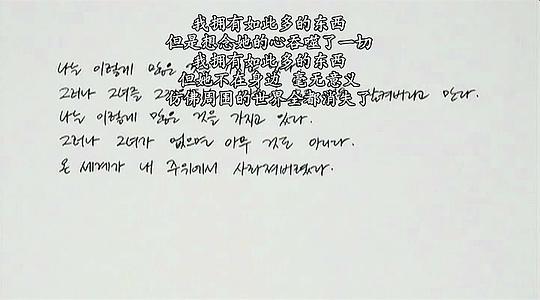 我拥有如此多的东西
但是想念她的心吞噬了一切
我拥有如此多的东西
但她不在身边 毫无意义
仿佛周围的世界全都消失了
나는 이렇게 많은
그러나 그녀를 그 삼켜버리고 만다.
나는 이렇게 많은 것을 가지고 있다.
그러나 그녀가 없으면 아무 것도 아니다.
온 세계가 내 주위에서 사라져버렸다.